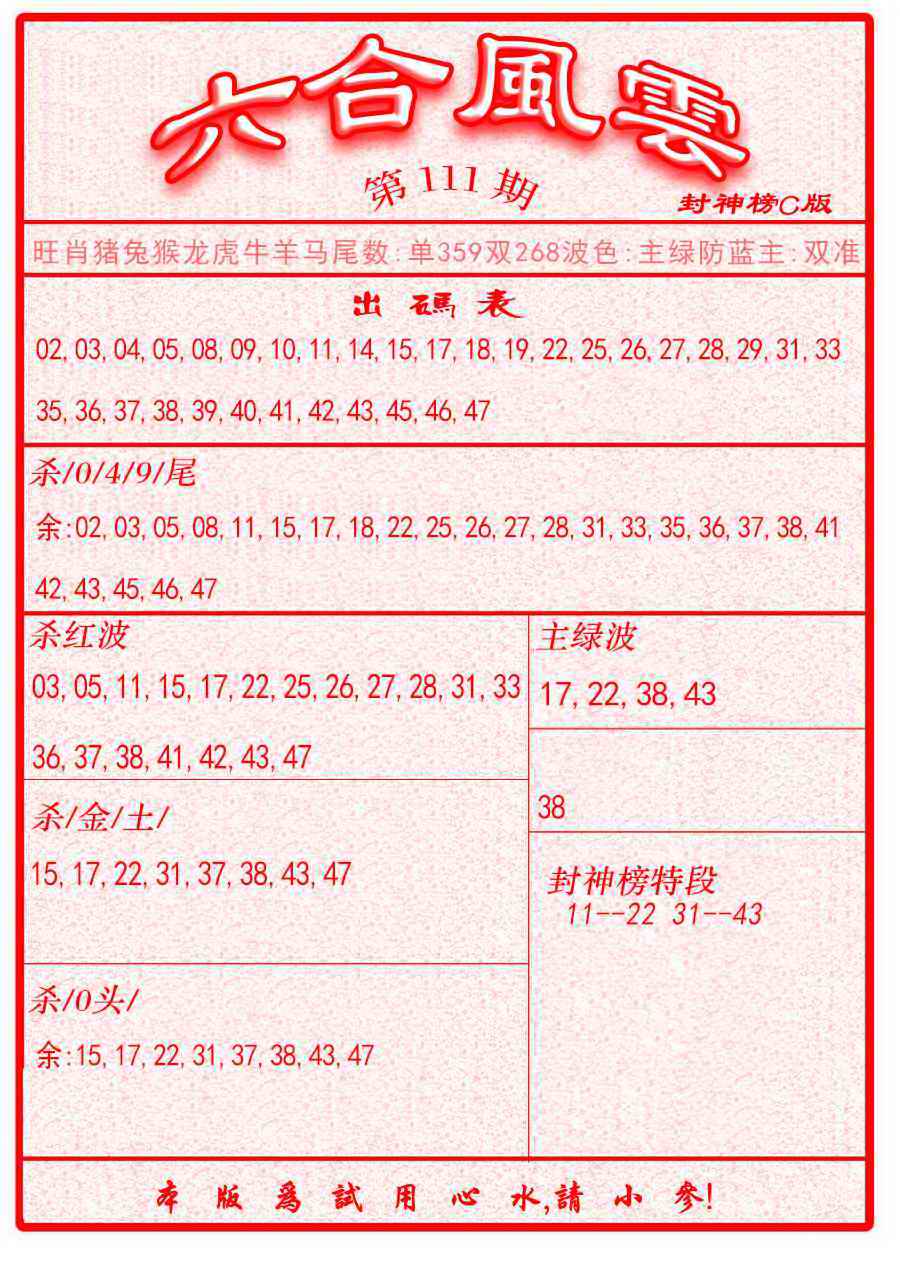 六合風雲
第111期
封神榜C版
旺肖猪兔猴龙虎牛羊马尾数:单359双268波色:主绿防蓝主:双准
出碼表
02,03,04,05,08,09,10,11,14,15,17,18,19,22,25,26,27,28,29,31,33
35,36,37,38,39,40,41,42,43,45,46,47
杀/0/4/9/尾
余:02,03,05,08,11,15,17,18,22,25,26,27,28,31,33,35,36,37,38,41
42,43,45,46,47
杀红波
03,05,11,15,17,22,25,26,27,28,31,33
36,37,38,41,42,43,47
主绿波
17,22,38,43
38
杀/金/土/
15,17,22,31,37,38,43,47
封神榜特段
11--22 31--43
杀/0头/
余:15,17,22,31,37,38,43,47
本版爲試用心水,請小參!